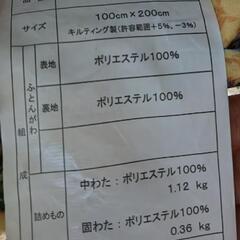 100cm×200cm
サイズ
キルティング製(許容範囲+5%、-3%)
ふとんがわ
表地
ポリエステル100%
裏地
ポリエステル100%
組成
詰めもの
中わた：ポリエステル100%
1.12 kg
固わた：ポリエステル100%
0.36 kg